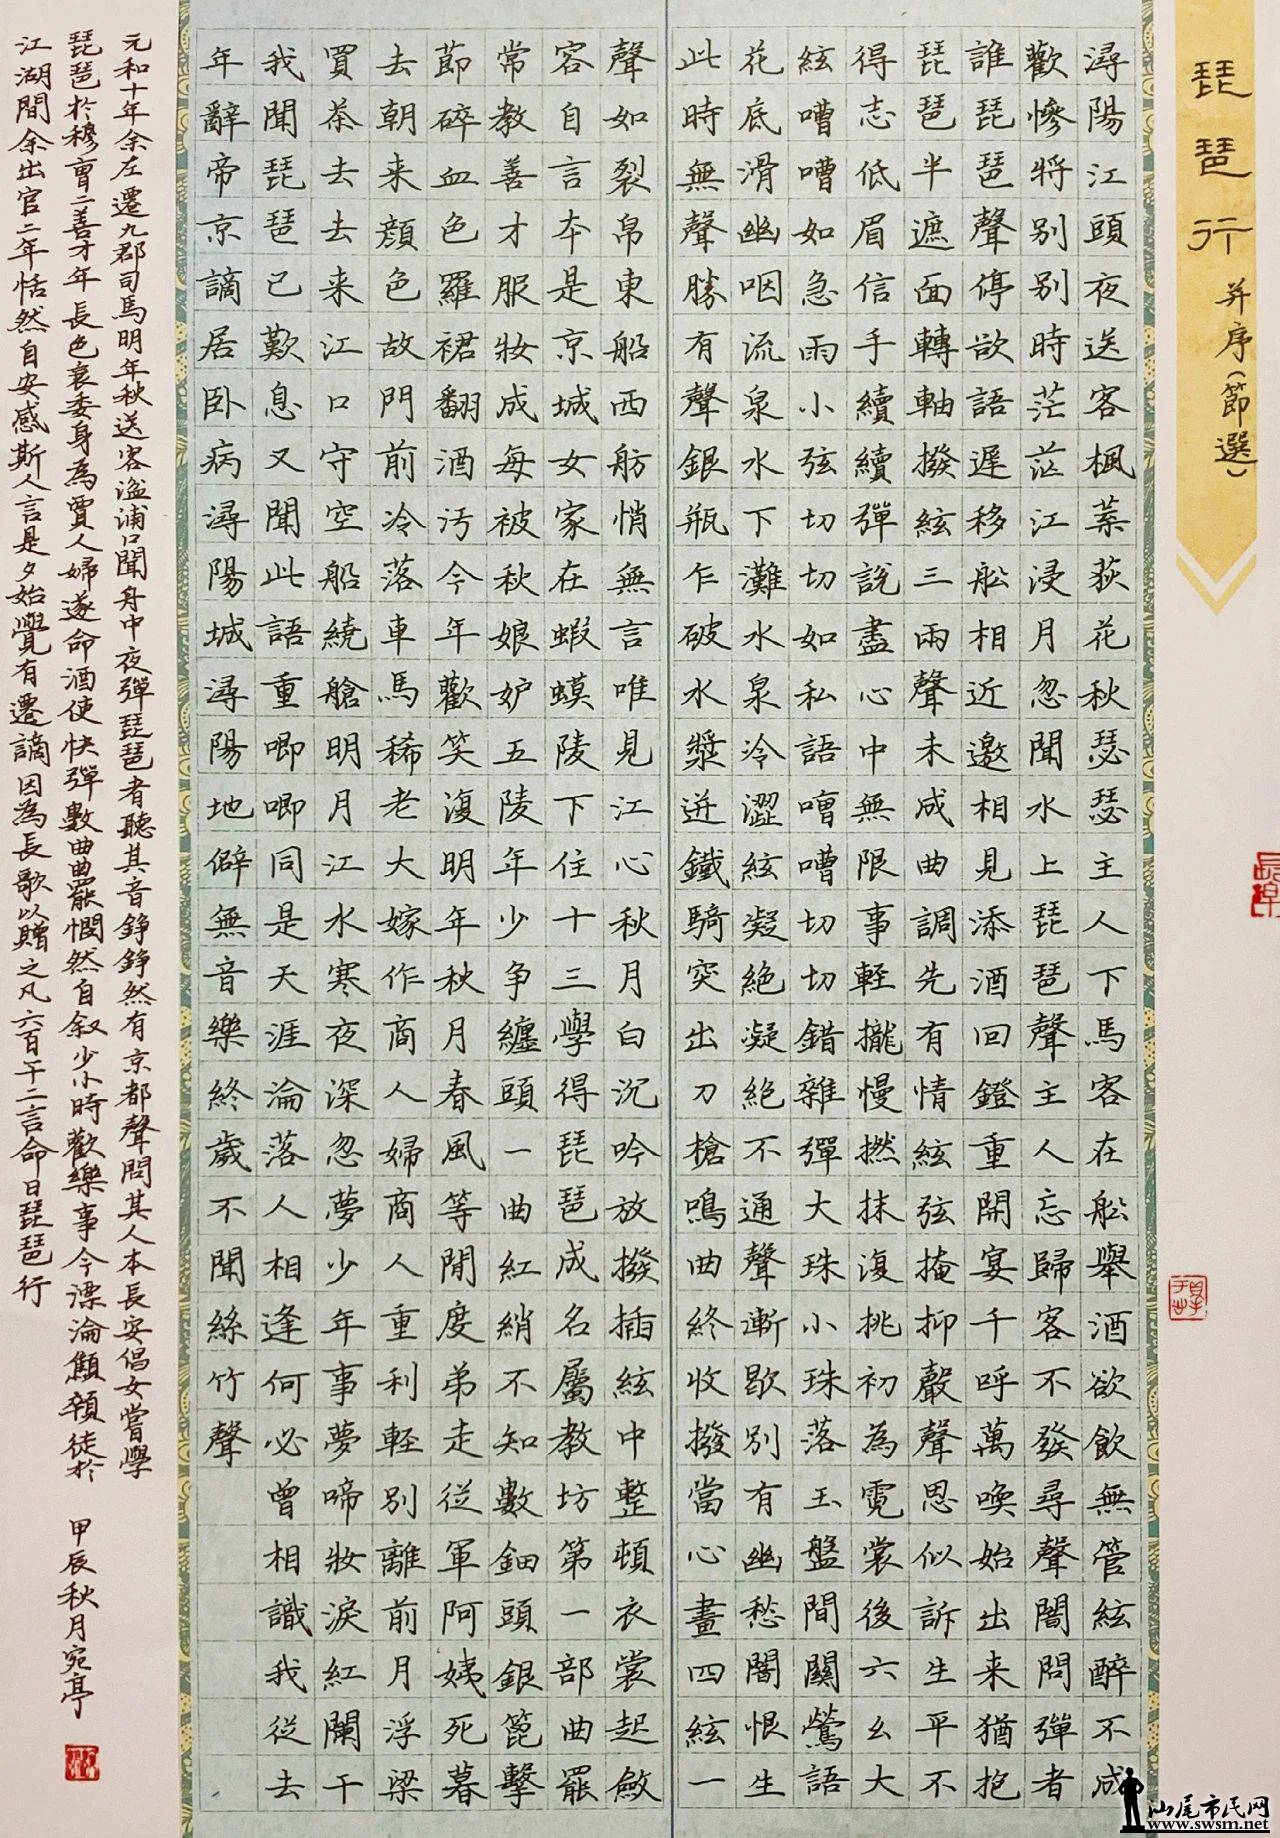 琵琶行并序(節選)
潯陽江頭夜送客楓葉荻花秋瑟瑟主人下馬客在船舉酒欲飲無管絃醉不成
歡慘將別別時茫茫江浸月忽聞水上琵琶聲主人忘歸客不發尋聲闇問彈者
誰琵琶聲停欲語遲移船相近邀相見添酒回鐙重開宴千呼萬喚始出来猶抱
琵琶半遮面轉軸撥絃三兩聲未成曲調先有情絃弦掩抑聲聲思似訴生平不
得志低眉信手續續彈說盡心中無限事輕攏慢撚抹復挑初為霓裳後六幺大
絃嘈嘈如急雨小弦切切如私語嘈嘈切切錯雜彈大珠小珠落玉盤間關鶯語
花底滑幽咽流泉水下灘水泉冷澀絃凝絕凝絕不通聲漸歇別有幽愁闇恨生
此時無聲勝有聲銀瓶乍破水漿迸鐵騎突出刀槍鳴曲終收撥當心畫四絃一
聲如裂帛東船西舫悄無言唯見江心秋月白沉吟放撥插絃中整頓衣裳起斂
容自言本是京城女家在蝦蟆陵下住十三學得琵琶成名屬教坊第一部曲罷
常教善才服妝成每被秋娘妒五陵年少争纏頭一曲紅綃不知數鈿頭銀篦擊
節碎血色羅裙翻酒污今年歡笑復明年秋月春風等閒度弟走從軍阿姨死暮
去朝来顏色故門前冷落車馬稀老大嫁作商人婦商人重利輕別離前月浮梁
買茶去去来江口守空船繞艙明月江水寒夜深忽夢少年事夢啼妝淚紅闌干
我聞琵琶已歎息又聞此語重唧唧同是天涯淪落人相逢何必曾相識我從去
年辭帝京謫居卧病潯陽城潯陽地僻無音樂終歲不聞絲竹聲
元和十年余左遷九郡司馬明年秋送客湓浦口聞舟中夜彈琵琶者聽其音錚錚然有京都聲問其人本長安倡女嘗學
琵琶於穆曹二善才年長色衰委身為賈人婦遂命酒使快彈數曲曲罷憫然自叙少小時歡樂事今漂淪顦顇徒於
江湖間余出官二年恬然自安感斯人言是夕始覺有遷謫因為長歌以贈之凡六百一十二言命曰琵琶行
甲辰秋月宛亭
汕尾市民网
www.swsm.net